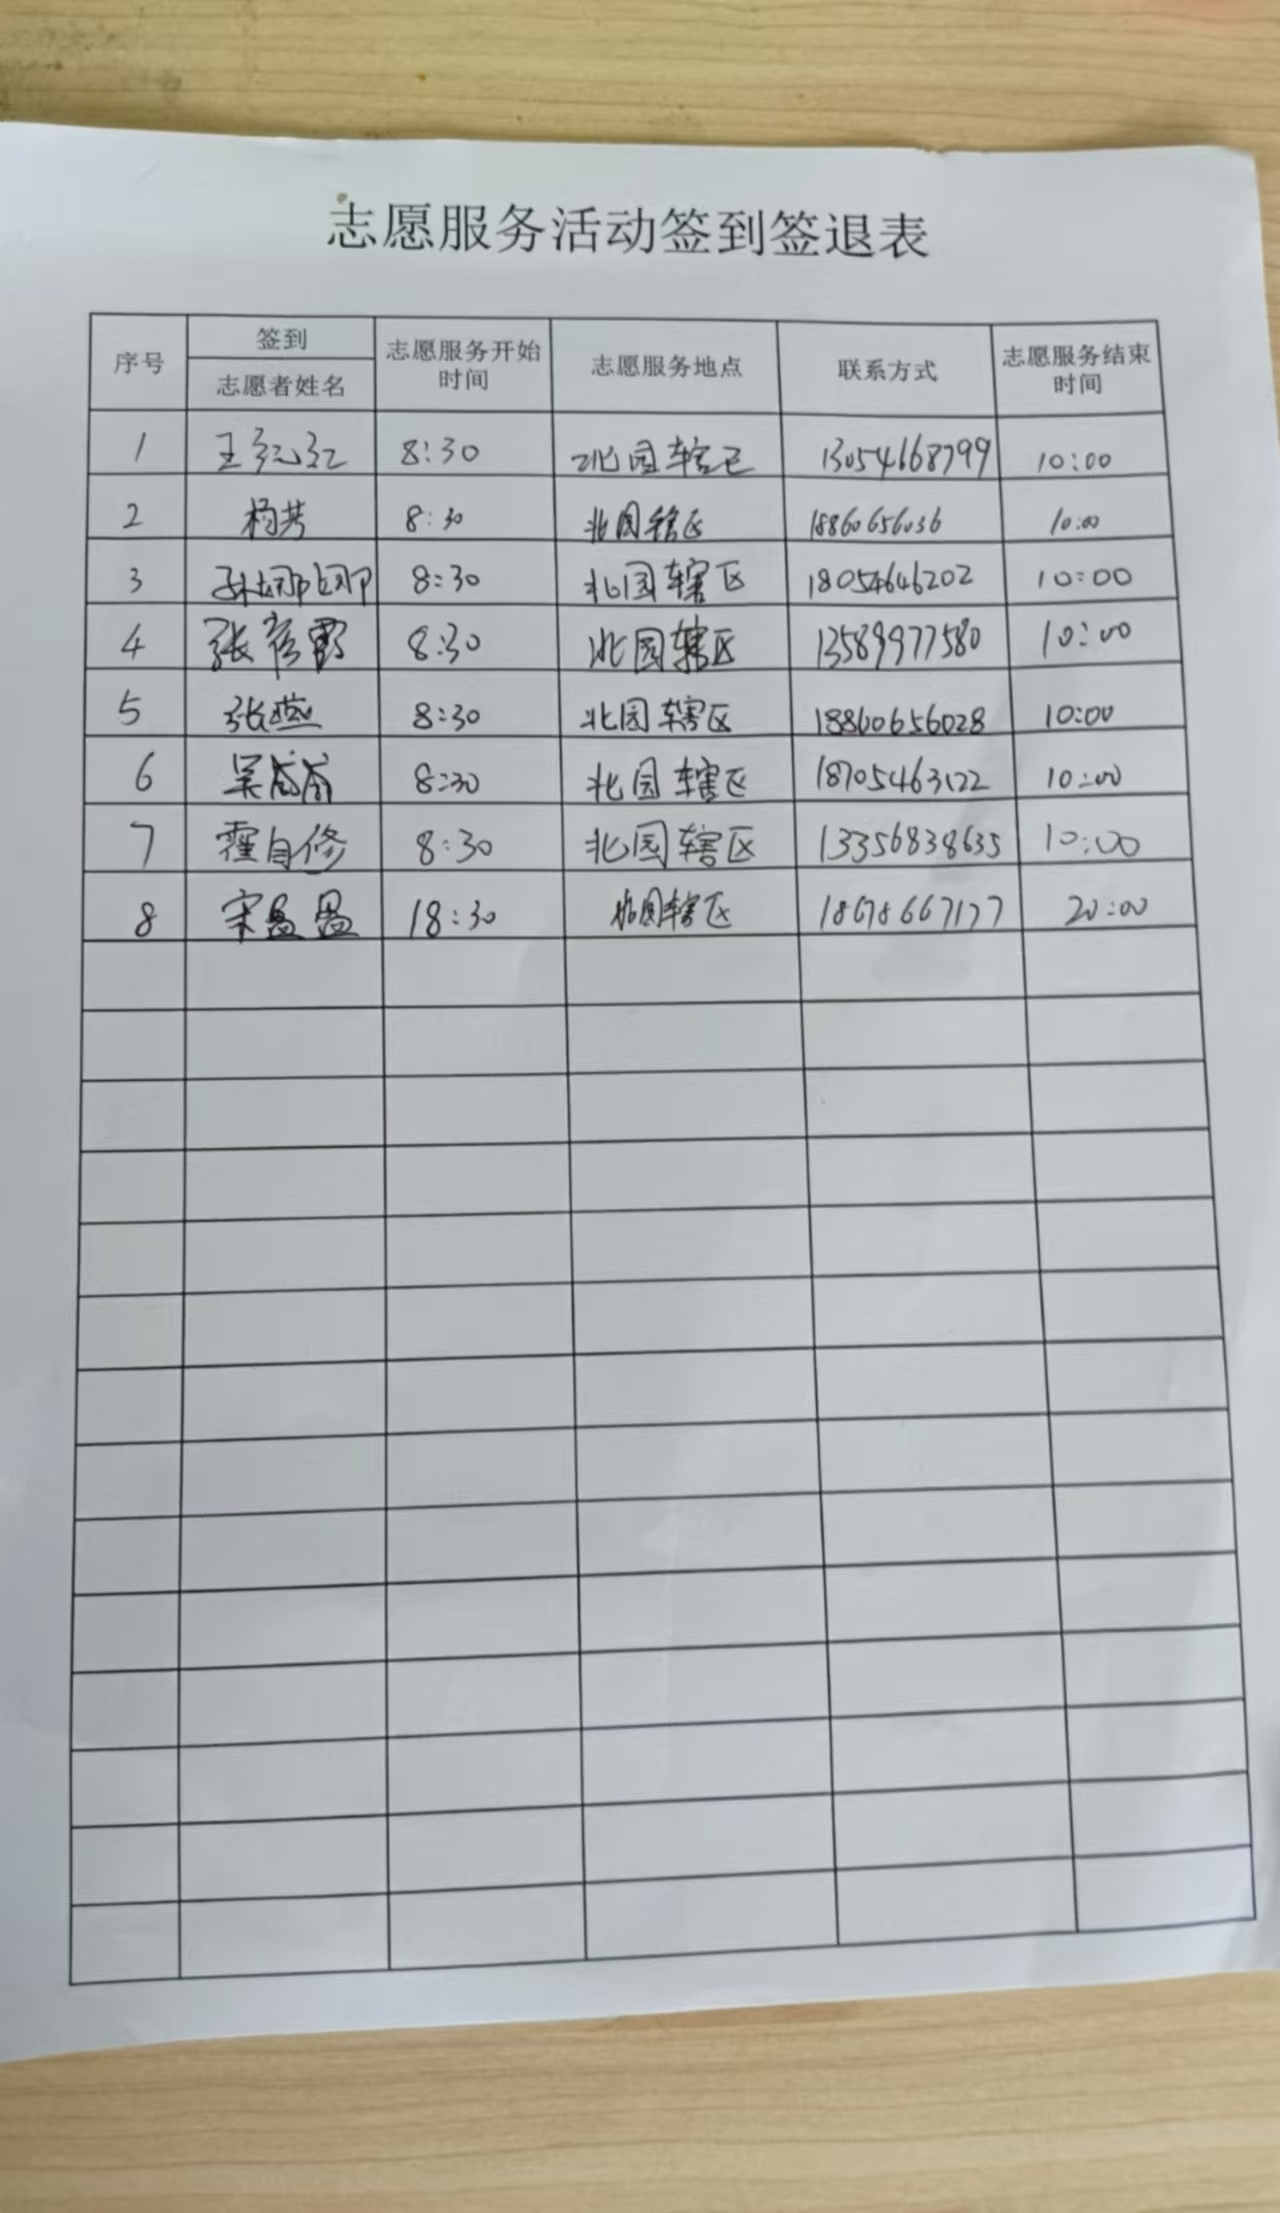 志愿服务活动签到签退表
序号 签到 志愿者姓名 志愿服务开始时间 志愿服务地点 联系方式 志愿服务结束时间
1 王 红 8:30 北园辖区 13054668799 10:00
2 杨芳 8:30 北园辖区 18860656036 10:00
3 孙娜娜 8:30 北园辖区 18054646202 10:00
4 张彦霞 8:30 北园辖区 13589977580 10:00
5 张燕 8:30 北园辖区 18860656028 10:00
6 吴 8:30 北园辖区 18705463122 10:00
7 霍自修 8:30 北园辖区 13356838635 10:00
8 宋盈盈 18:30 北园辖区 18678667177 20:00